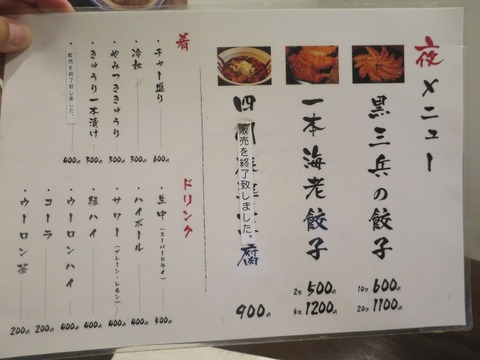 夜メニュー
黒三兵の餃子
10コ 600円
20コ 1100円
一本海老餃子
2コ 500円
5コ 1200円
四川
腐
販売を終了致しました。
900円
肴
・チャー盛り 600円
・冷奴 300円
・やみつききゅうり 300円
・きゅうり一本漬け 300円
・販売を終了致しました。 400円
ドリンク
・生中(スーパードライ) 500円
・ハイボール 400円
・サワー(プレーン・レモン) 400円
・緑ハイ 400円
・ウーロンハイ 400円
・コーラ 200円
・ウーロン茶 200円